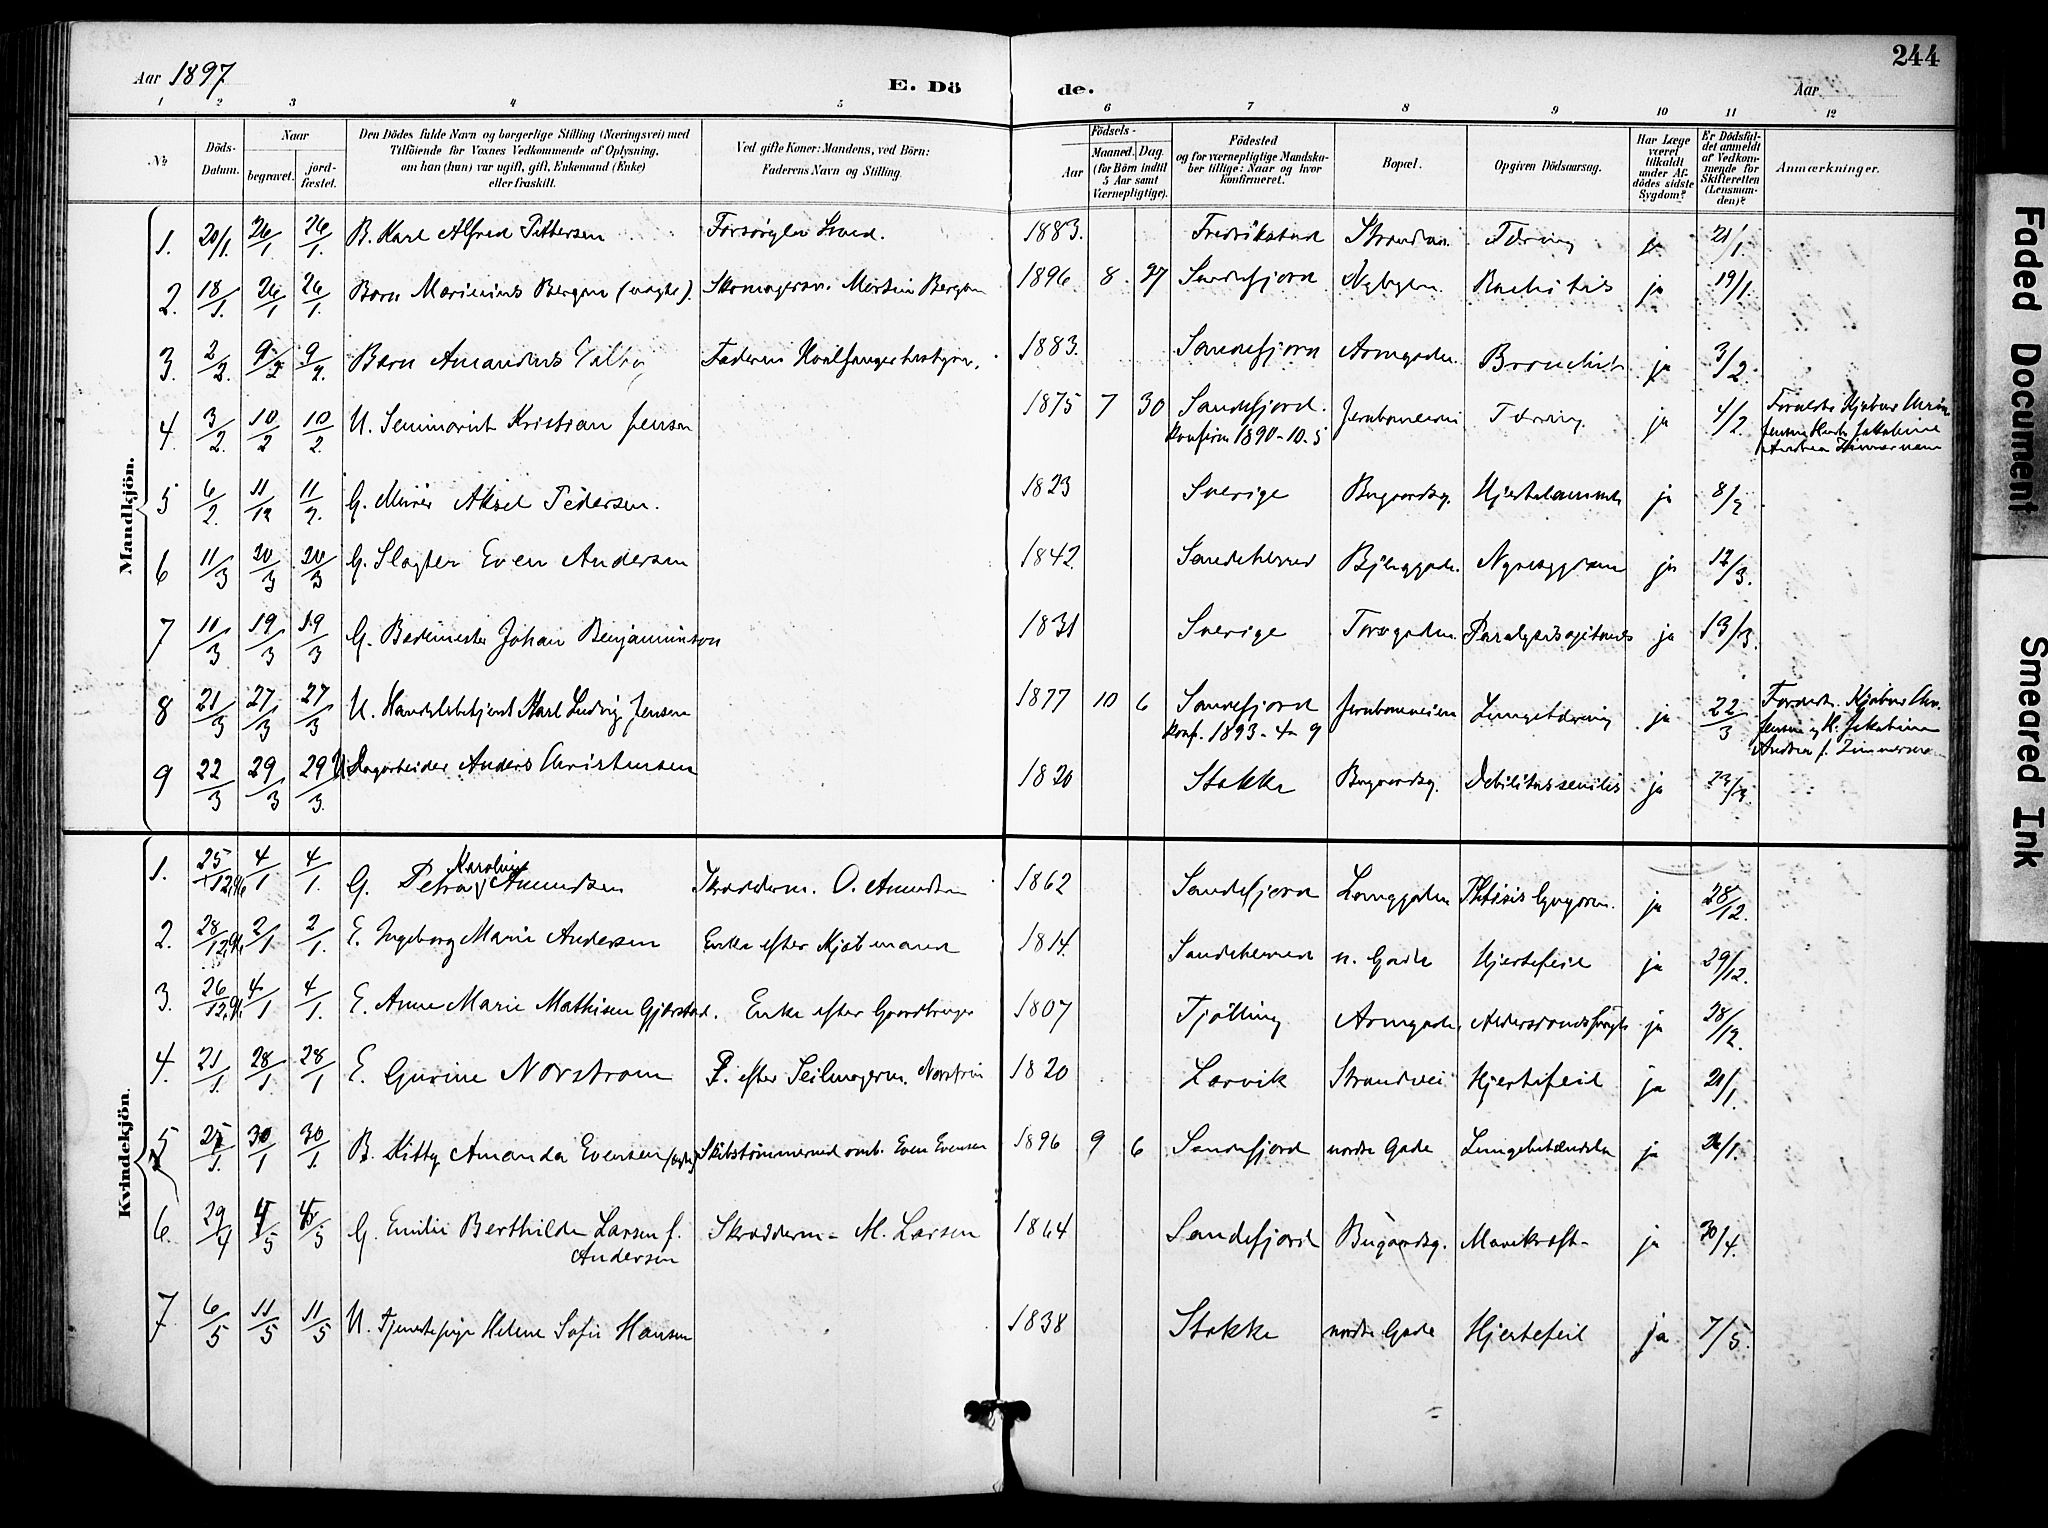 Aar 1897
E. Dö
de.
Aar
244
1 2 3 4 5 6 7 8 9 10 11 12
No
Döds-Datum.
Naar
begravet.
jord-fæstet.
Den Dödes fulde Navn og borgerlige Stilling (Næringsvei) med
Tilföiende for Voxnes Vedkommende af Oplysning,
om han (hun) var ugift, gift, Enkemand (Enke)
eller fraskilt.
Ved gifte Koner: Mandens, ved Börn:
Faderens Navn og Stilling.
Födsels-
Aar
Maaned. Dag.
(for Börn indtil
5 Aar samt
Værnepligtige).
Födested
og for værnepligtige Mandska-
ber tillige: Naar og hvor
konfirmeret.
Bopæl.
Opgiven Dödsaarsag.
Har Læge
været
tilkaldt
under Af-
dödes sidste
Sygdom?
Er Dödsfal-
det anmeldt
af Vedkom-
mende for
Skifteretten
(Lensman-
den)?
Anmærkninger.
Mandkjön.
1. 20/1. 26/1 26/1. B. Karl Alfred Pettersen 1883. Fredrikstad Tæring ja 21/1.
2. 18/1. 26/1 26/1. Barn Marinius Bergan Martin Bergan 1896 8. 27 Sandefjord Rachitis ja 19/1.
3. 2/2. 9/2 9/2. Barn Amandus 1883. Sandefjord Bronchit ja 3/2.
4 3/2. 10/2 10/2. U. Seminarist Kristian Jensen 1875 7 30 Sandefjord. Jernbaneveien Tæring. ja 4/2.
konfirm 1890-10.5
5 6/2. 11/2 11/2. G. Murer Aksel Pedersen. 1823 Sverige Bugaardsg. ja 8/2
6 11/3 20/3 20/3 G. Slagter Even Andersen 1842. Sandeherred Bjerggaden. Nyresygdom ja 12/3.
7 10/3 19/3 19/3 G. Bademester Johan Benjaminson 1831 Sverige Torvgaden ja 13/3.
8 21/3 27/3 27/3 U. Handelsbetjent Karl Ludvig Jensen 1877 10 6 Sandefjord Jernbaneveien Lungetæring ja 22/3
konf. 1893-4-9
9 22/3 29/3 29/3. Dagarbeider Anders Christensen 1820 Stokke Bugaardsg. Debilitas senilis ja 23/3.
Kvindekjön.
1. 25/12.96 4/1 4/1. G. Petra Karoline Amundsen Skrædderm. O. Amundsen 1862 Sandefjord Langgaden ja 28/12.
2. 28/12.96 2/1 2/1. E. Ingeborg Marie Andersen Enke efter Kjøbmand 1814. Sandeherred n. Gade Hjertefeil ja 29/12.
3. 26/12.96 4/1 4/1. E. Anne Marie Mathisen Gjerstad. Enke efter Gaardbruger 1807 Tjølling Alderdomssvaghed ja 28/12.
4. 21/1. 28/1 28/1 E. Gurine Norstrom E. efter Seilmagerm. Norstrøm 1820 Larvik Strandvei Hjertefeil ja 21/1.
5 25/1. 30/1 30/1. B. Kitty Amanda Evensen Skibstømmermand Even Evensen 1896 9 6 Sandefjord nordre Gade Lungebetændelse ja 26/1.
6. 29/4 4/5 4/5 G. Emilie Berthilde Larsen f. Andersen Skrædderm- M. Larsen 1864 Sandefjord Bugaardsg. Mavekræft- ja 30/4.
7 6/5 11/5 11/5 U. Tjenestepige Helene Sofie Hansen 1838 Stokke nordre Gade Hjertefeil ja 7/5.
Faded Document
Smeared Ink